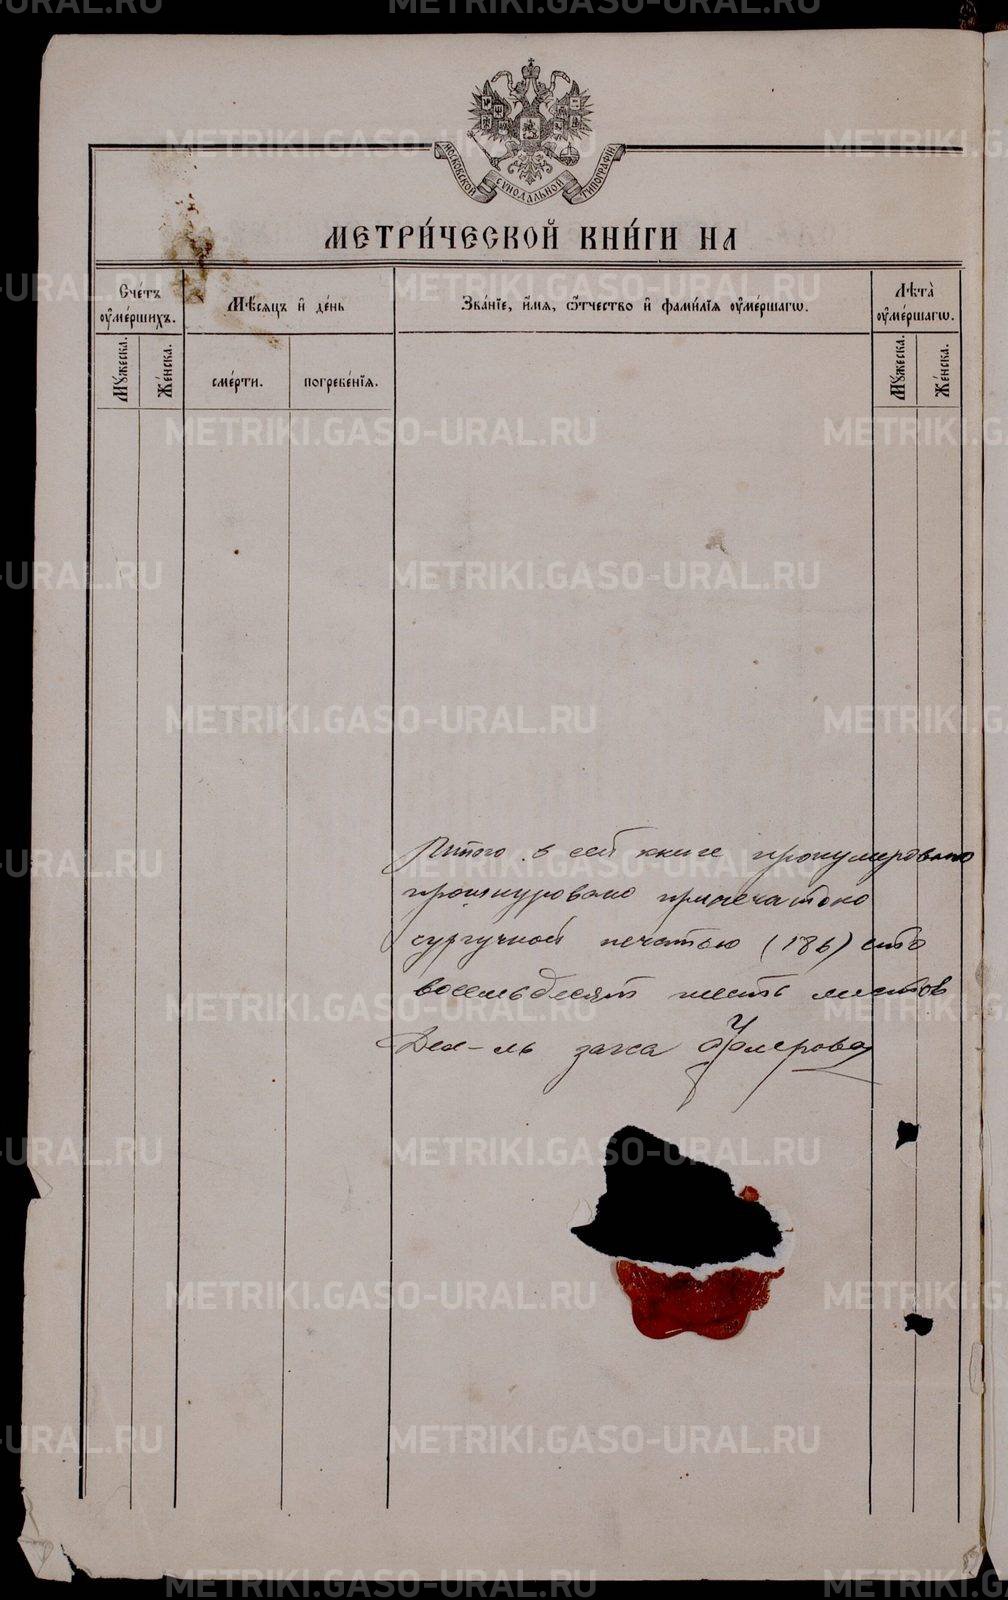 METRIKI.GASO-URAL.RU
МОСКОВСКОЙ СѴНОДАЛЬНОЙ ТИПОГРАФІИ
МЕТРИ́ЧЕСКОЙ КНИ́ГИ НА
Сче́тъ ᲂу҆ме́ршихъ.
Мѣ́сяцъ и҆ де́нь
Зва́нїе, и҆́мя, ѻ҆́тчество и҆ фами́лїѧ ᲂу҆ме́ршагѡ.
Лѣ́та ᲂу҆ме́ршагѡ.
Мꙋ́жеска.
Же́нска.
сме́рти.
погребе́нїѧ.
Мꙋ́жеска.
Же́нска.
Итого в сей книге пронумеровано
прошнуровано припечатано
сургучной печатью (186) сто
восемьдесят шесть листов
Дел-ль загса